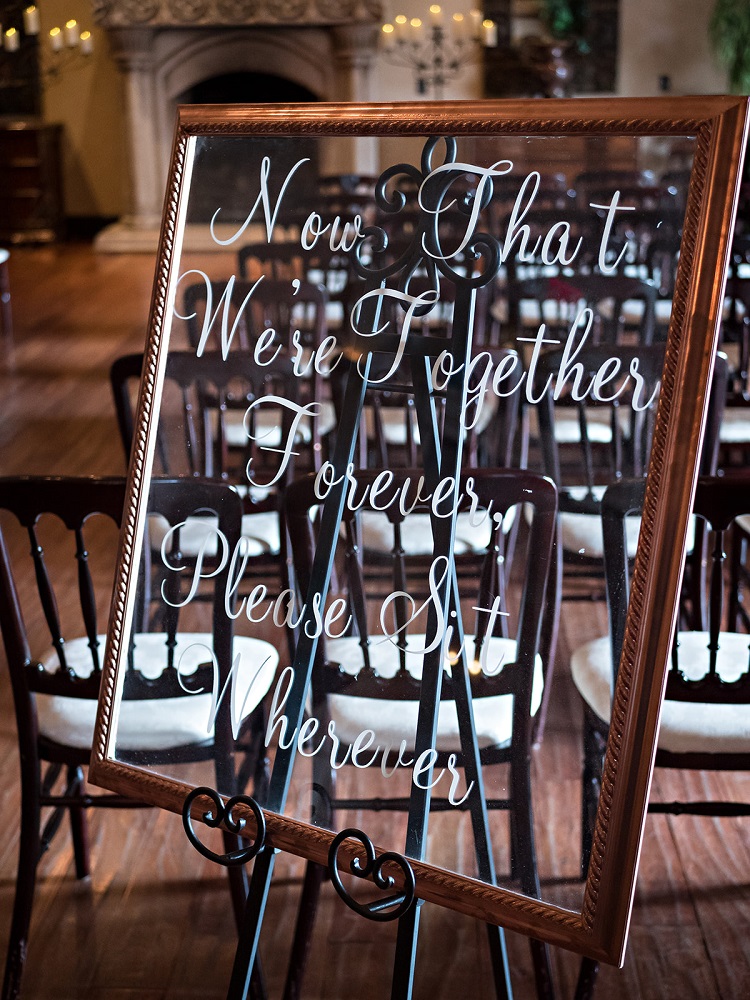 Now That
We're Together
Forever,
Please Sit
Wherever